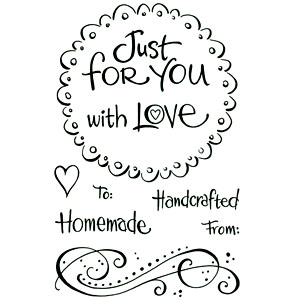 Just
FOR YOU
with LOVE
To:
Handcrafted
Homemade
From: